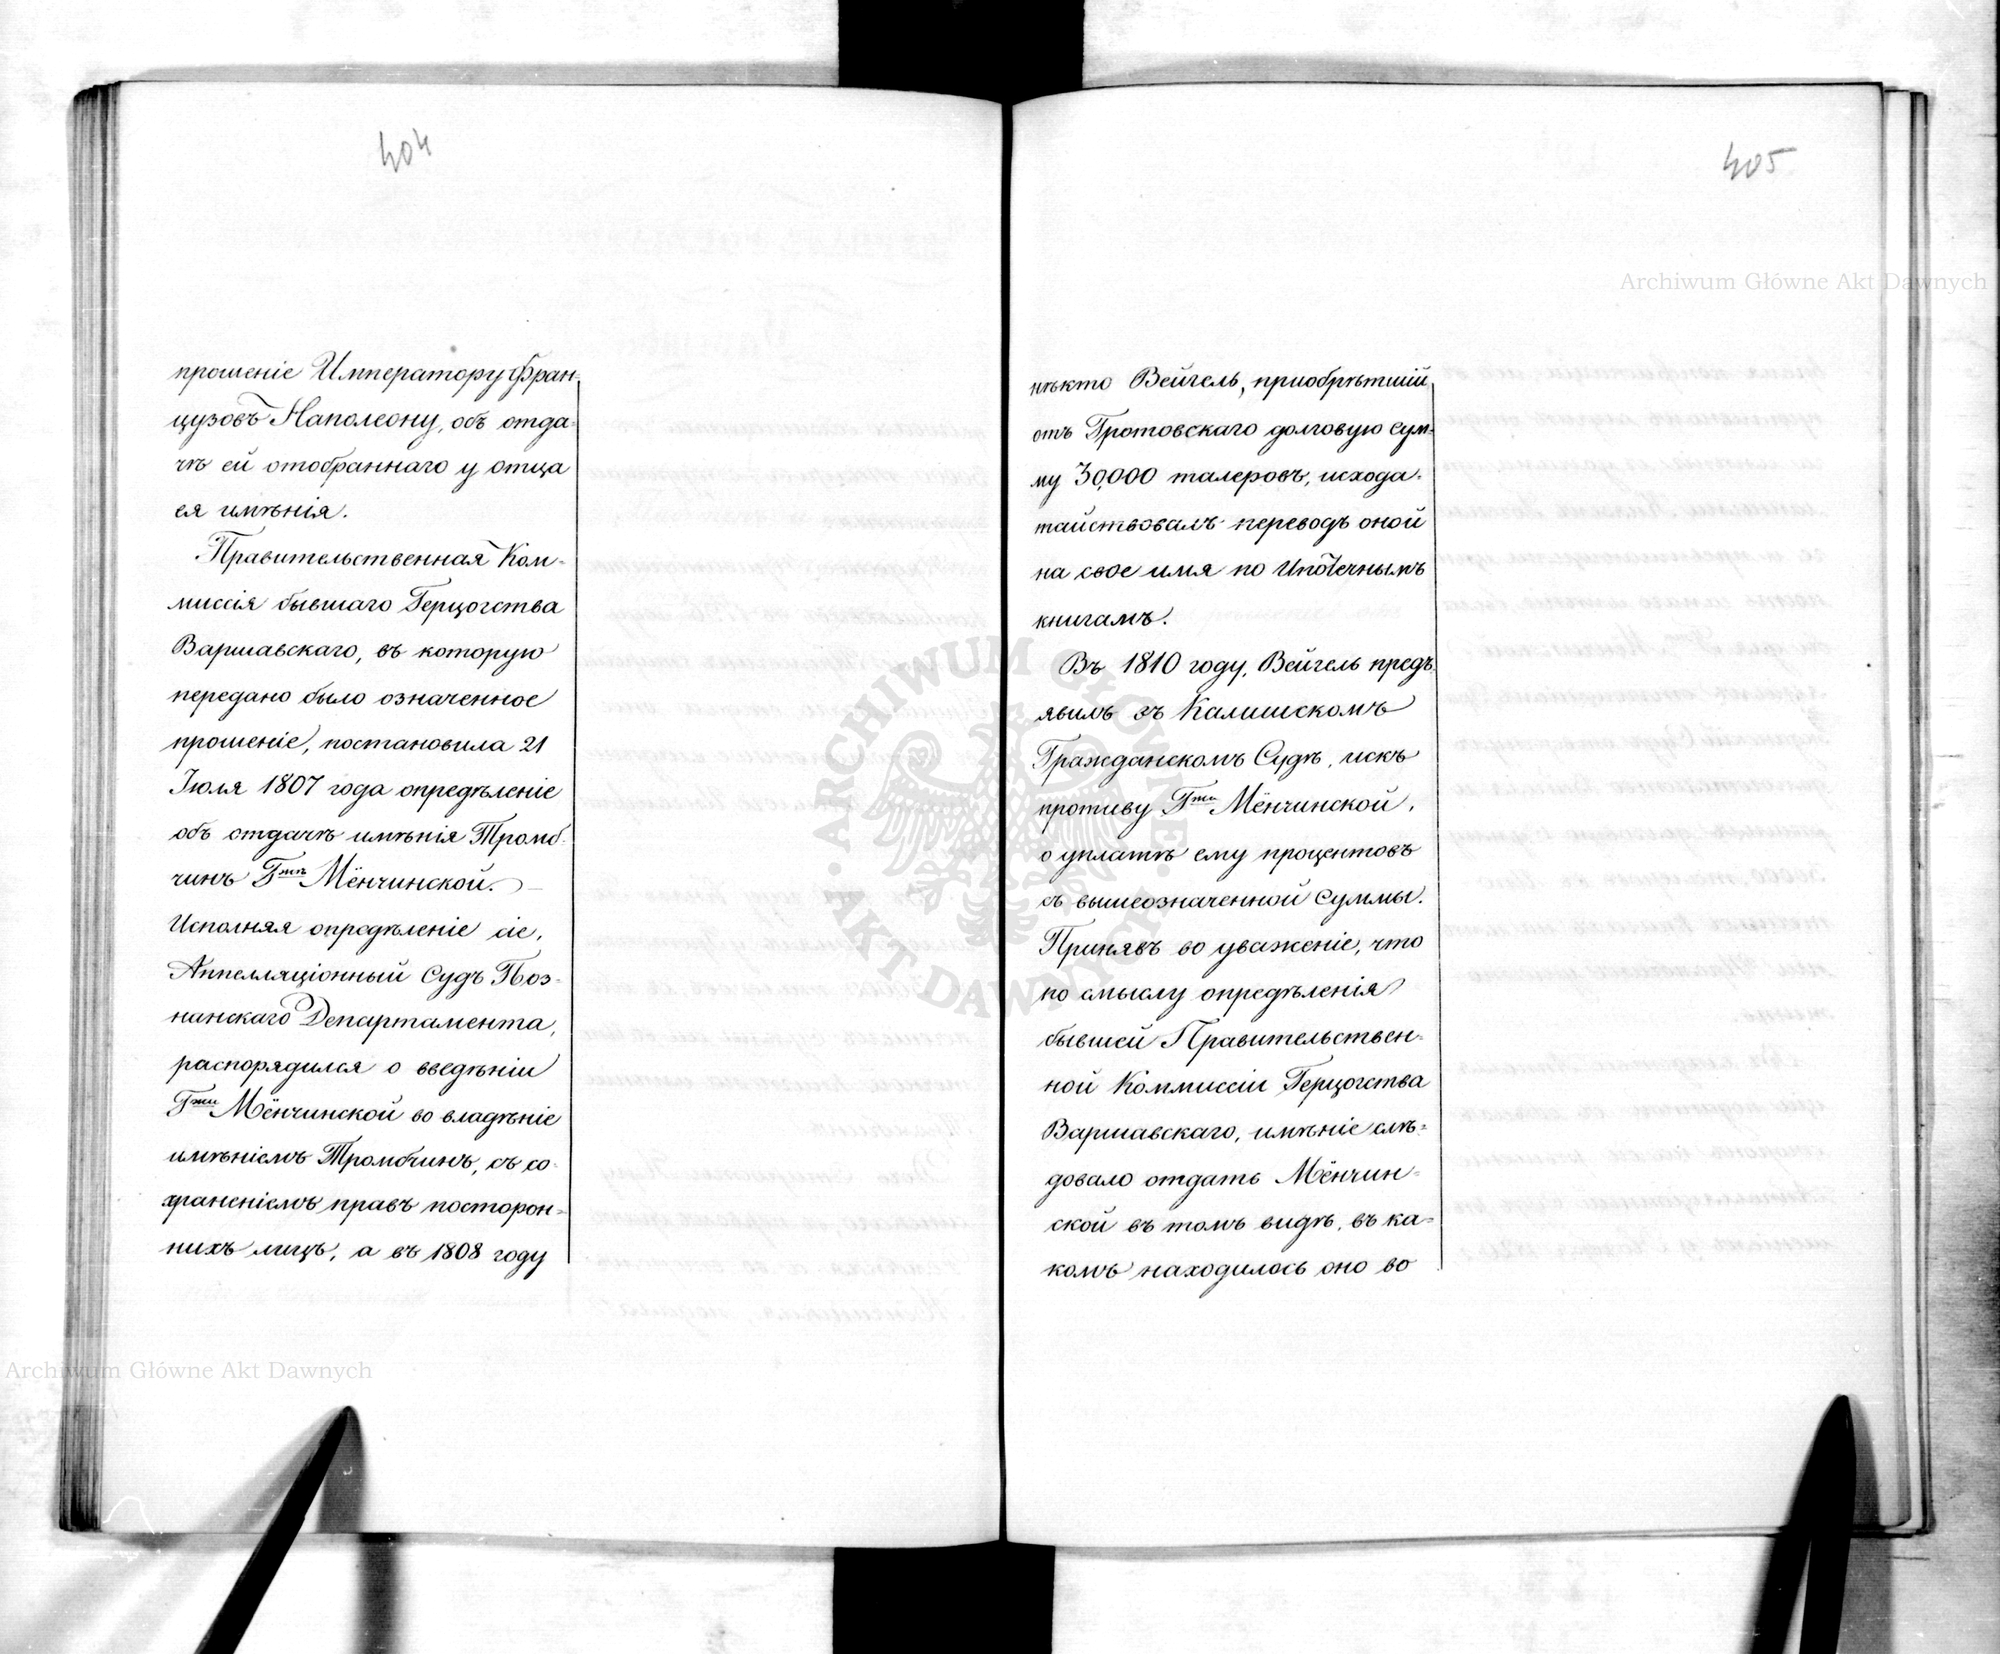 404
прошеніе Императору Фран-
цузовъ Наполеону, объ отда-
чѣ ей отобраннаго у отца
ея имѣнія.
Правительственная Ком-
миссія бывшаго Герцогства
Варшавскаго, въ которую
передано было означенное
прошеніе, постановила 21
Іюля 1807 года опредѣленіе
объ отдачѣ имѣнія Тромб-
чинъ Гжѣ Мёнчинской.
Исполняя опредѣленіе сіе,
Аппелляціонный Судъ Поз-
нанскаго Департамента,
распорядился о введѣніи
Гжи Мёнчинской во владѣніе
имѣніемъ Тромбчинъ, съ со-
храненіемъ правъ посторон-
нихъ лицъ, а въ 1808 году
405
нѣкто Вейгель, пріобрѣтшій
отъ Гротовскаго долговую сум-
му 30,000 талеровъ, исхода-
тайствовалъ переводъ оной
на свое имя по Ипотечнымъ
книгамъ.
Въ 1810 году, Вейгель предъ-
явилъ въ Калишскомъ
Гражданскомъ Судѣ, искъ
противу Гжи Мёнчинской,
о уплатѣ ему процентовъ
съ вышеозначенной Суммы.
Принявъ во уваженіе, что
по смыслу опредѣленія
бывшей Правительствен-
ной Коммиссіи Герцогства
Варшавскаго, имѣніе слѣ-
довало отдать Мёнчин-
ской въ томъ видѣ, въ ка-
комъ находилось оно во
Archiwum Główne Akt Dawnych
Archiwum Główne Akt Dawnych
ARCHIWUM GŁÓWNE · AKT DAWNYCH ·